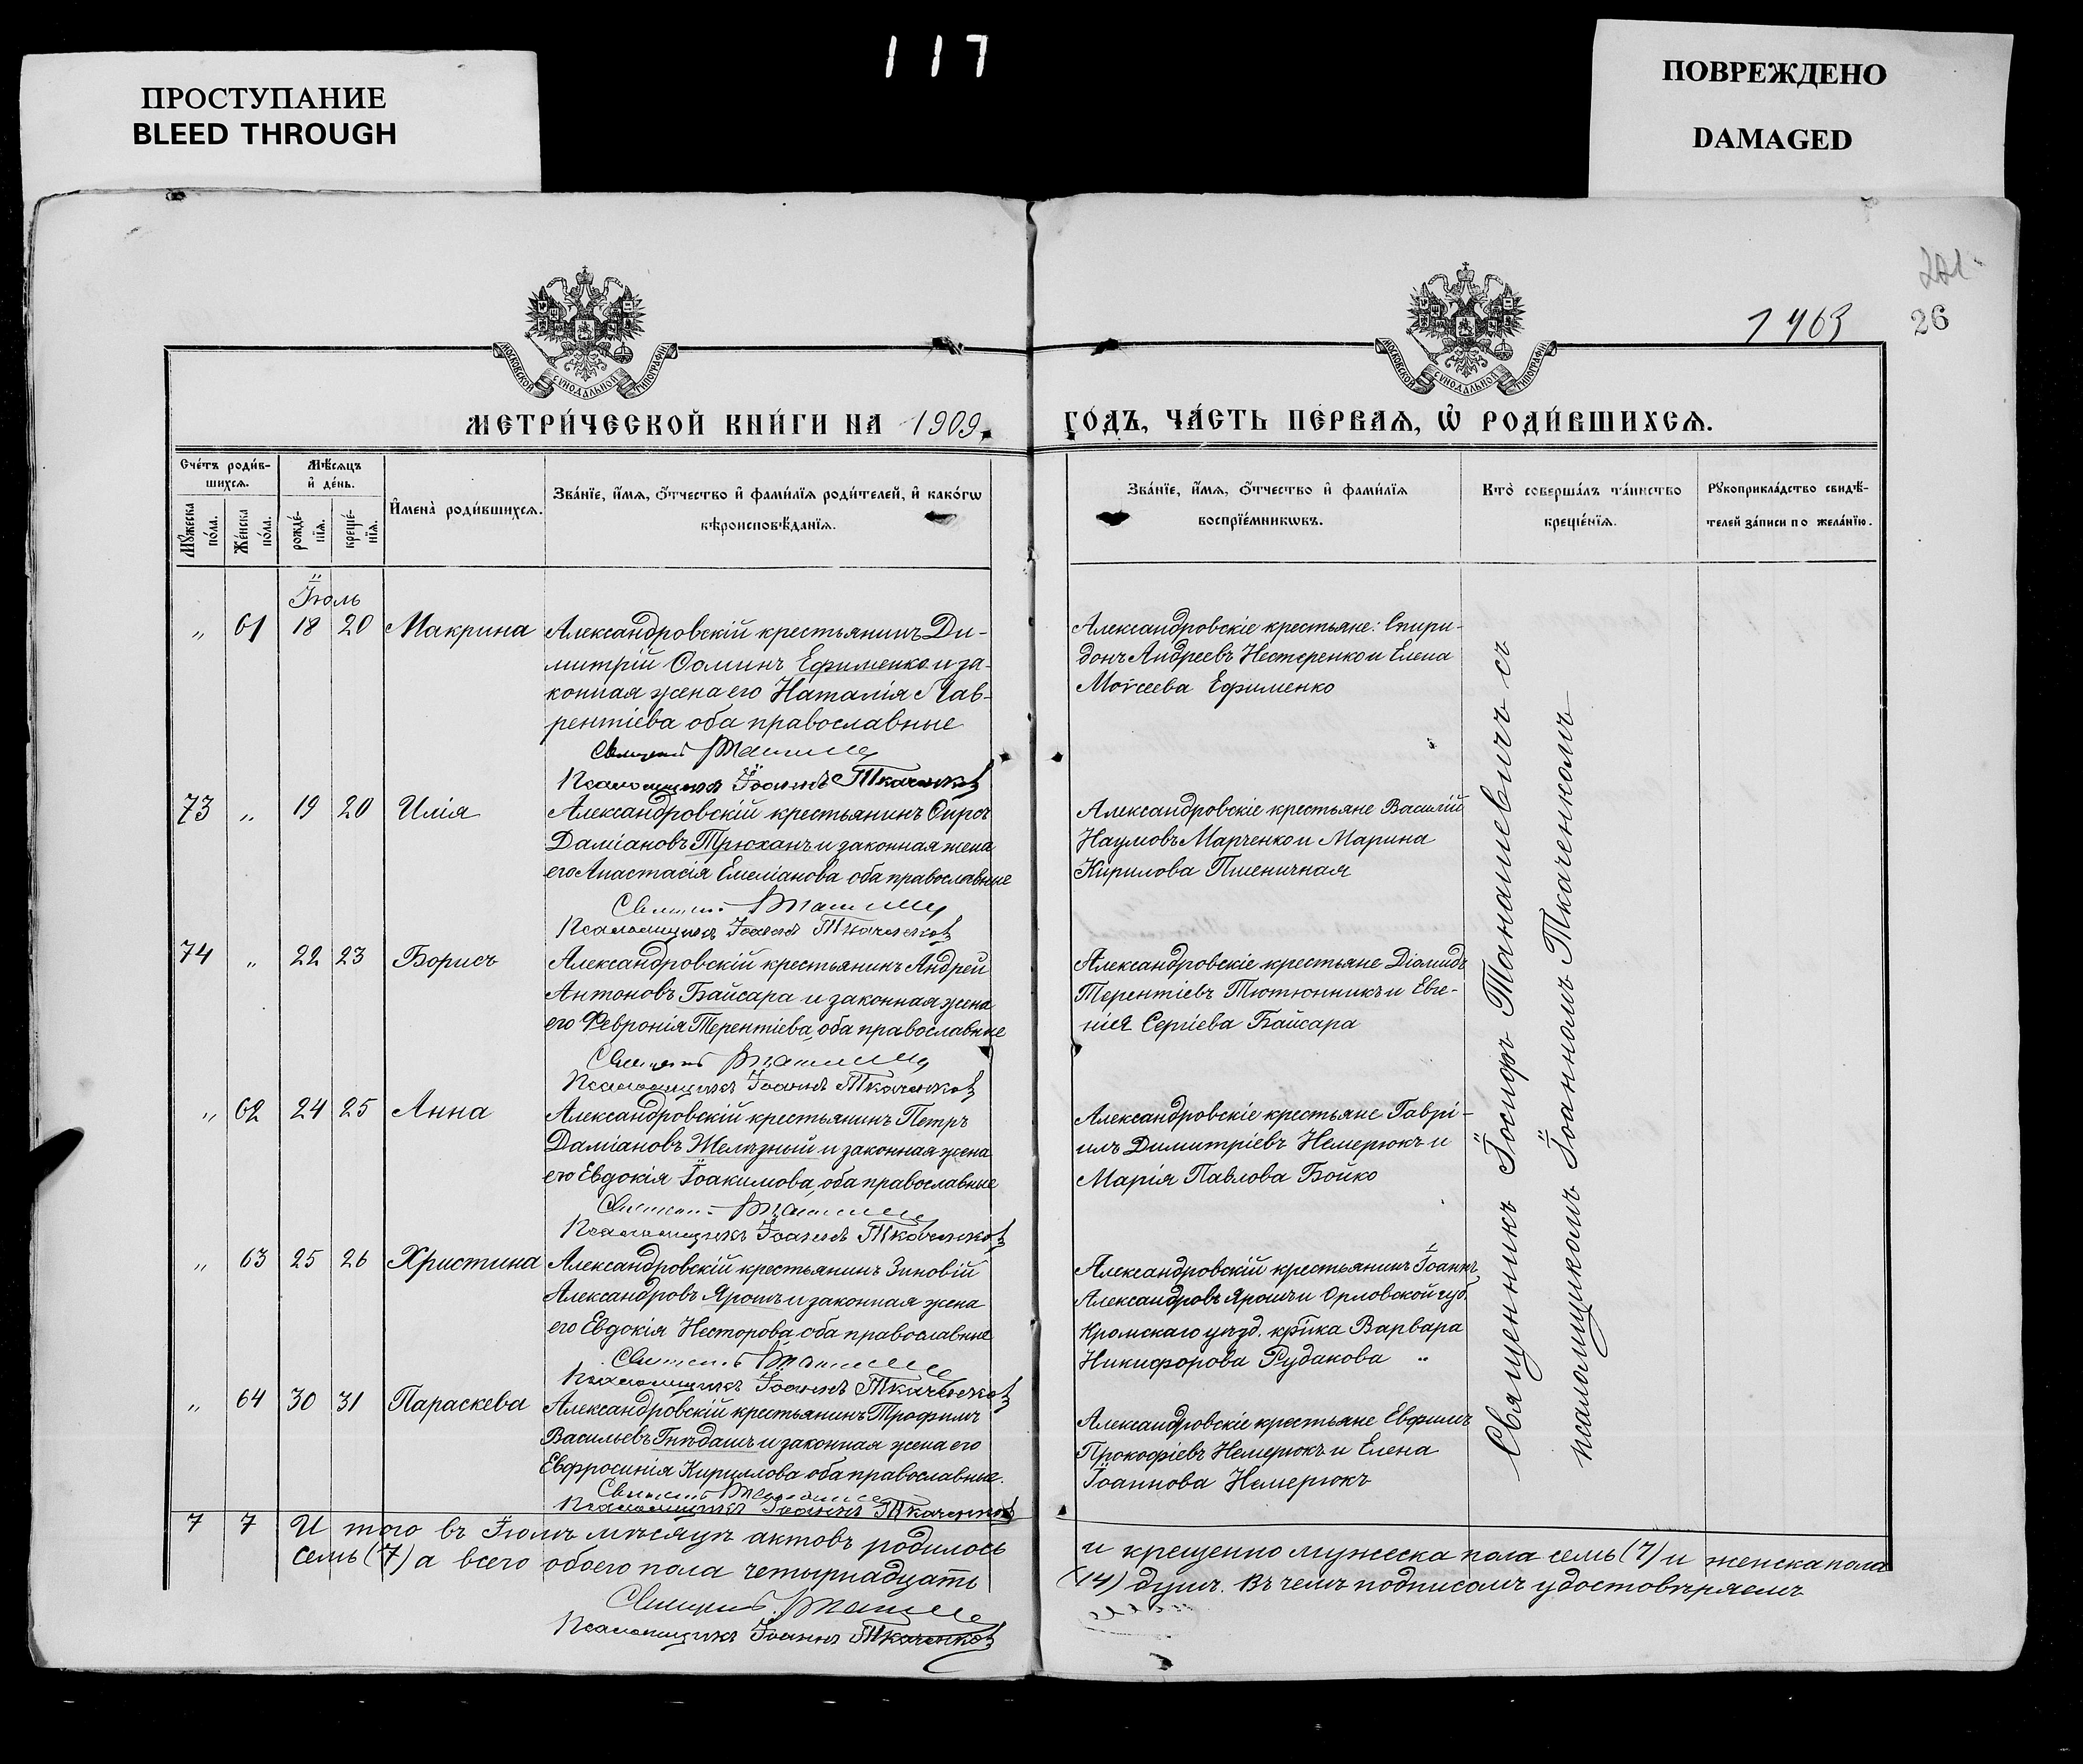 117
ПРОСТУПАНИЕ
BLEED THROUGH
ПОВРЕЖДЕНО
DAMAGED
26
1463
МОСКОВСКОЙ СѴНОДАЛЬНОЙ ТИПОГРАФІИ
МОСКОВСКОЙ СѴНОДАЛЬНОЙ ТИПОГРАФІИ
МЕТРИ́ЧЕСКОЙ КНИ́ГИ НА 1909
ГО́ДЪ, ЧА́СТЬ ПЕ́РВАѦ, Ѽ РОДИ́ВШИХСѦ.
Сче́тъ роди́в-
шихсѧ.
Мѣ́сѧцъ
и҆ де́нь.
Мꙋ́жеска по́ла.
Же́нска по́ла.
рожде́-
нїѧ.
креще́-
нїѧ.
И҆мена̀ роди́вшихсѧ.
Зва́нїе, и҆́мѧ, ѻ҆́тчество и҆ фами́лїѧ роди́телей, и҆ како́гѡ
вѣроисповѣ́данїѧ.
Зва́нїе, и҆́мѧ, ѻ҆́тчество и҆ фами́лїѧ
воспрїе́мникѡвъ.
Кто̀ соверша́лъ та́инство
креще́нїѧ.
Рꙋкоприкла́дство свидѣ́-
телей за́писи по жела́нїю.
Іюль
" 61 18 20 Макрина Александровскій крестьянинъ Ди-
митрій Ѳоминъ Ефименко и за-
конная жена его Наталія Лав-
рентіева оба православные
Священникъ Танашевичъ
Псаломщикъ Іоаннъ Ткаченковъ
Александровскіе крестьяне: Спири-
донъ Андреевъ Нестеренко и Елена
Моѵсеева Ефименко
73 " 19 20 Илія Александровскій крестьянинъ Спиръ
Даміановъ Трюханъ и законная жена
его Анастасія Емеліанова оба православные
Священникъ Танашевичъ
Псаломщикъ Іоаннъ Ткаченковъ
Александровскіе крестьяне Василій
Наумовъ Марченко и Марина
Кирилова Пшеничная
74 " 22 23 Борисъ Александровскій крестьянинъ Андрей
Антоновъ Байсара и законная жена
его Февронія Терентіева, оба православные
Священникъ Танашевичъ
Псаломщикъ Іоаннъ Ткаченковъ
Александровскіе крестьяне Діомидъ
Терентіевъ Тютюнникъ и Евге-
нія Сергіева Байсара
" 62 24 25 Анна Александровскій крестьянинъ Петръ
Даміановъ Желѣзный и законная жена
его Евдокія Іоакимова, оба православные
Священникъ Танашевичъ
Псаломщикъ Іоаннъ Ткаченковъ
Александровскіе крестьяне Гаврі-
илъ Димитріевъ Немерюкъ и
Марія Павлова Бойко
" 63 25 26 Христина Александровскій крестьянинъ Зиновій
Александровъ Ярошъ и законная жена
его Евдокія Несторова оба православные
Священникъ Танашевичъ
Псаломщикъ Іоаннъ Ткаченковъ
Александровскій крестьянинъ Іоаннъ
Александровъ Ярошъ и Орловской губ.
Кромскаго уѣзд. кр-ка Варвара
Никифорова Рудакова "
" 64 30 31 Параскева Александровскій крестьянинъ Трофимъ
Васильевъ Гнѣдашъ и законная жена его
Евфросинія Кириллова оба православные.
Священникъ Танашевичъ
Псаломщикъ Іоаннъ Ткаченковъ
Александровскіе крестьяне Евфимъ
Прокофіевъ Немерюкъ и Елена
Іоаннова Немерюкъ
Священникъ Іосифъ Танашевичъ съ
псаломщикомъ Іоанномъ Ткаченкомъ
7 7 И того въ Іюлѣ мѣсяцѣ актовъ родилось и крещенно мужеска пола семь (7) и женска пола
семь (7) а всего обоего пола четырнадцать (14) душъ. Въ чемъ подписомъ удостовѣряемъ
Священникъ Танашевичъ
Псаломщикъ Іоаннъ Ткаченковъ